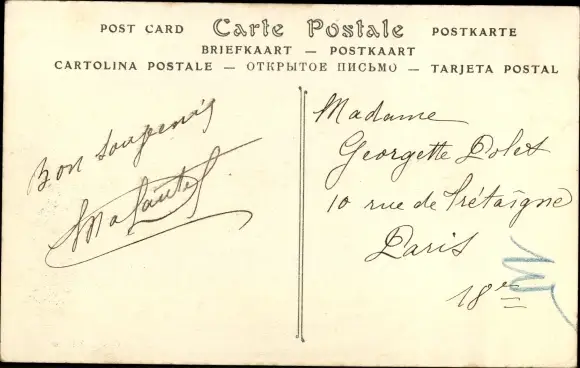 POST CARD Carte Postale POSTKARTE
BRIEFKAART — POSTKAART
CARTOLINA POSTALE — ОТКРЫТОЕ ПИСЬМО — TARJETA POSTAL
Bon souvenir
Madame
Georgette Dolet
10 rue de Trétaigne
Paris
18e